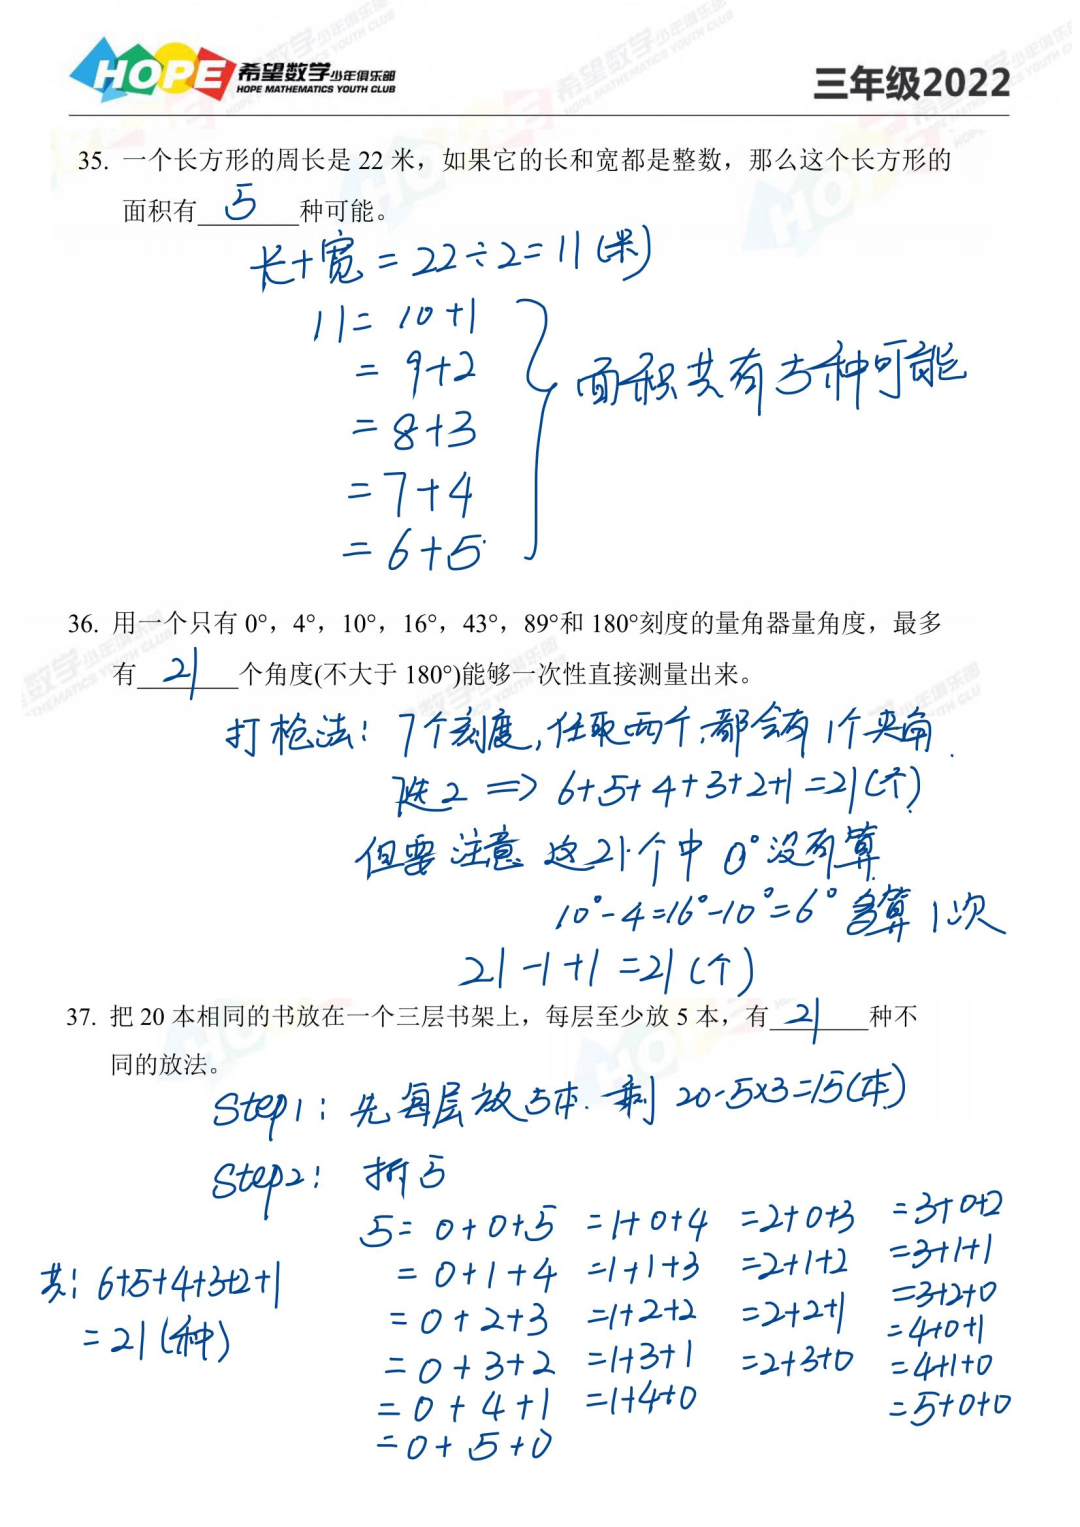 HOPE 希望数学少年俱乐部
HOPE MATHEMATICS YOUTH CLUB
三年级2022
35. 一个长方形的周长是 22 米，如果它的长和宽都是整数，那么这个长方形的
面积有 5 种可能。
长+宽 = 22÷2=11(米)
11= 10+1
= 9+2
= 8+3
= 7+4
= 6+5
面积共有5种可能
36. 用一个只有 0°，4°，10°，16°，43°，89°和 180°刻度的量角器量角度，最多
有 21 个角度(不大于 180°)能够一次性直接测量出来。
打枪法: 7个刻度,任取两个,都会有1个夹角.
选2 => 6+5+4+3+2+1=21(个)
但要注意 这21个中 0°没有算
10°-4=16°-10°=6° 多算1次
21-1+1=21(个)
37. 把 20 本相同的书放在一个三层书架上，每层至少放 5 本，有 21 种不
同的放法。
Step1: 先每层放5本. 剩 20-5×3=15(本)
Step2: 拆5
5= 0+0+5 =1+0+4 =2+0+3 =3+0+2
= 0+1+4 =1+1+3 =2+1+2 =3+1+1
= 0+2+3 =1+2+2 =2+2+1 =3+2+0
= 0+3+2 =1+3+1 =2+3+0 =4+0+1
= 0+4+1 =1+4+0 =4+1+0
= 0+5+0 =5+0+0
共: 6+5+4+3+2+1
=21(种)